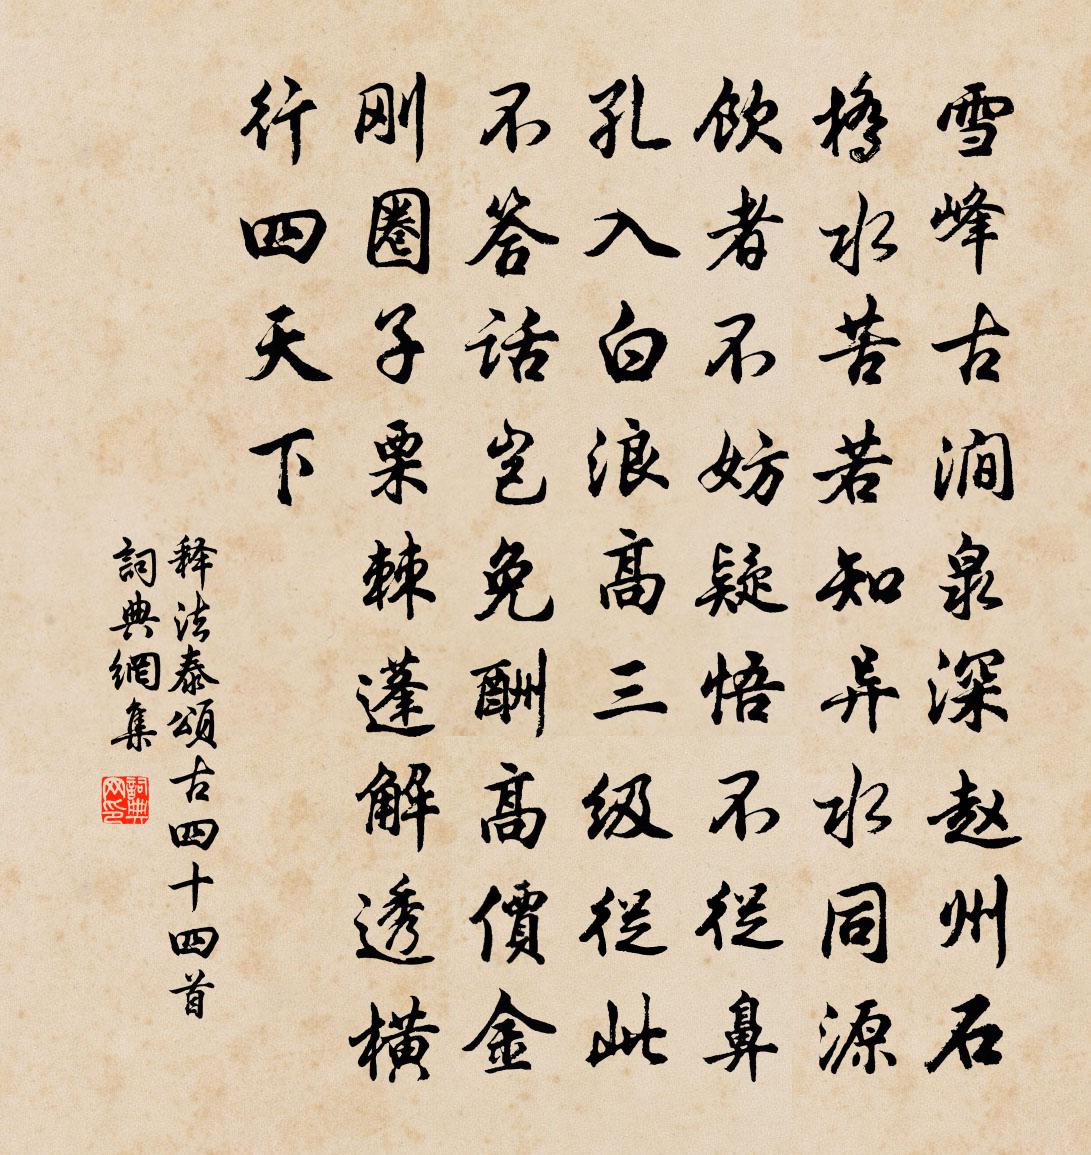 雪峰古澗泉深赵州石
橋水苦若知异水同源
飲者不妨疑悟不從鼻
孔入白浪高三级從此
不答話岂免酬高價金
刚圈子栗棘蓬解透橫
行四天下
释法泰頌古四十四首
詞典網集
詞典网印